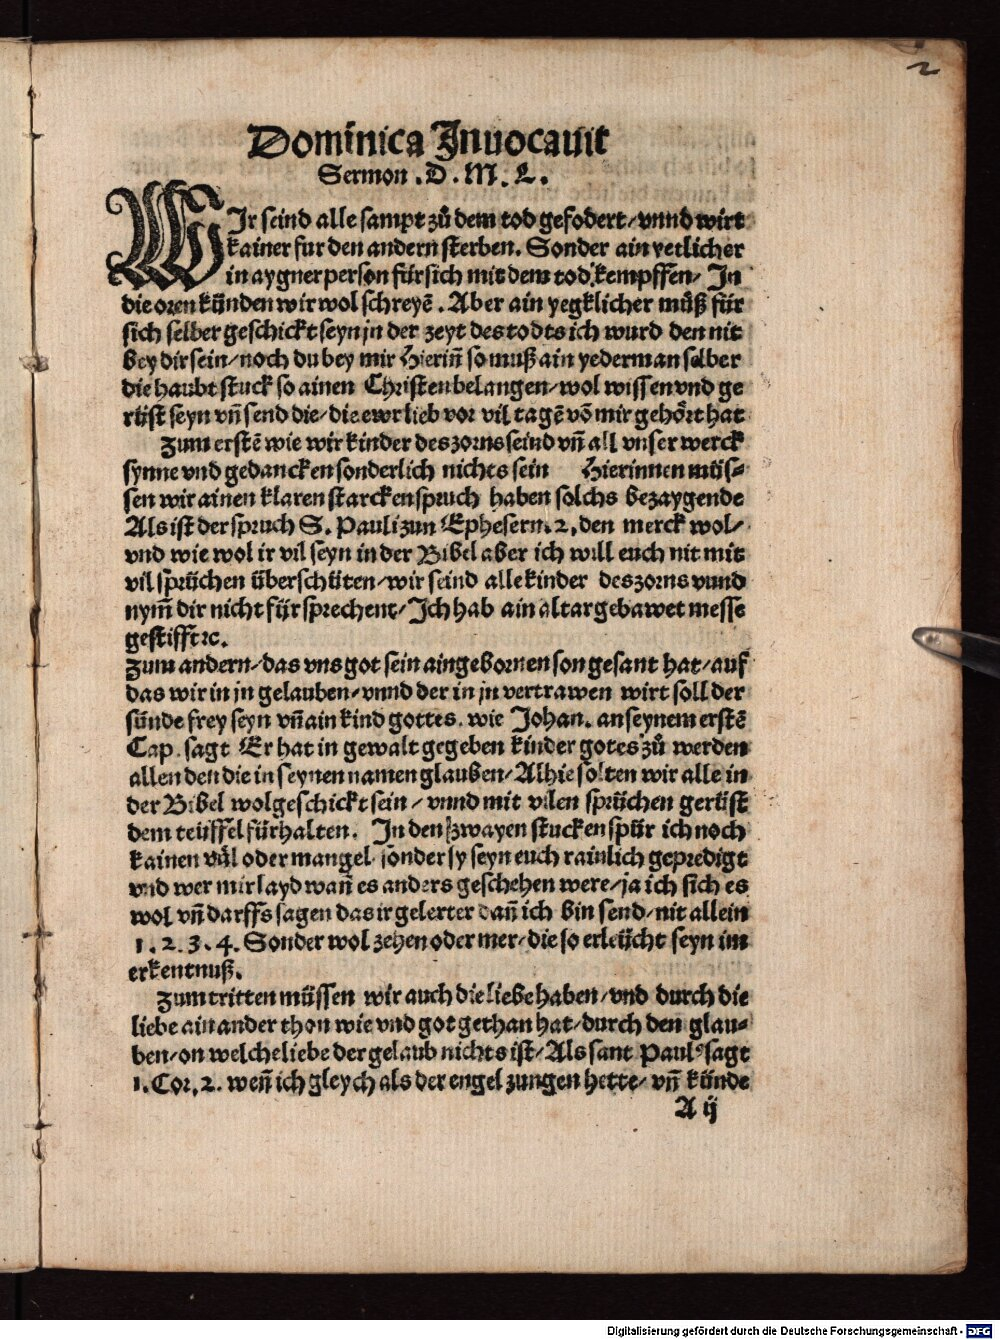 2
Dominica Inuocauit
Sermon .D.M.L.
WIr seind alle sampt zů dem tod gefodert/vnnd wirt
kainer fur den andern sterben. Sonder ain yetlicher
in aygner person für sich mit dem tod kempffen/ In
die oren künden wir wol schreyẽ. Aber ain yegklicher můß für
sich selber geschickt seyn jn der zeyt des todts ich wurd den nit
bey dir sein/noch du bey mir Hieriñ so muß ain yederman selber
die haubt stuck so ainen Christen belangen/wol wissen vnd ge
rüst seyn vñ send die/die ewr lieb vor vil tagẽ võ mir gehört hat
Zum erstẽ wie wir kinder des zorns seind vñ all vnser werck
synne vnd gedancken sonderlich nichts sein Hierinnen müs⸗
sen wir ainen klaren starcken spruch haben solchs bezaygende
Als ist der spruch S. Pauli zun Ephesern. 2, den merck wol/
vnd wie wol ir vil seyn in der Bibel aber ich will euch nit mit
vil sprüchen überschüten/wir seind alle kinder des zorns vnnd
nym̃ dir nicht für sprechent/Ich hab ain altar gebawet messe
gestifft ⁊c.
Zum andern/das vns got sein aingebornen son gesant hat/auf
das wir in jn gelauben/vnnd der in jn vertrawen wirt soll der
sünde frey seyn vñ ain kind gottes. wie Johan. an seynem erstẽ
Cap. sagt Er hat in gewalt gegeben kinder gotes zů werden
allen den die in seynen namen glauben/Alhie solten wir alle in
der Bibel wol geschickt sein/vnnd mit vilen sprüchen gerüst
dem teüffel fürhalten. In den zwayen stucken spür ich noch
kainen väl oder mangel. sonder sy seyn euch rainlich gepredigt
vnd wer mir layd wañ es anders geschehen were/ja ich sich es
wol vñ darffs sagen das ir gelerter dañ ich bin send/nit allein
1.2.3.4. Sonder wol zehen oder mer/die so erleücht seyn im
erkentnuß.
Zum tritten müssen wir auch die liebe haben/vnd durch die
liebe ain ander thon wie vnd got gethan hat/durch den glau⸗
ben/on welche liebe der gelaub nichts ist/Als sant Paul⁹ sagt
1. Cor. 2. weñ ich gleych als der engel zungen hette/vñ künde
A ij
Digitalisierung gefördert durch die Deutsche Forschungsgemeinschaft - DFG